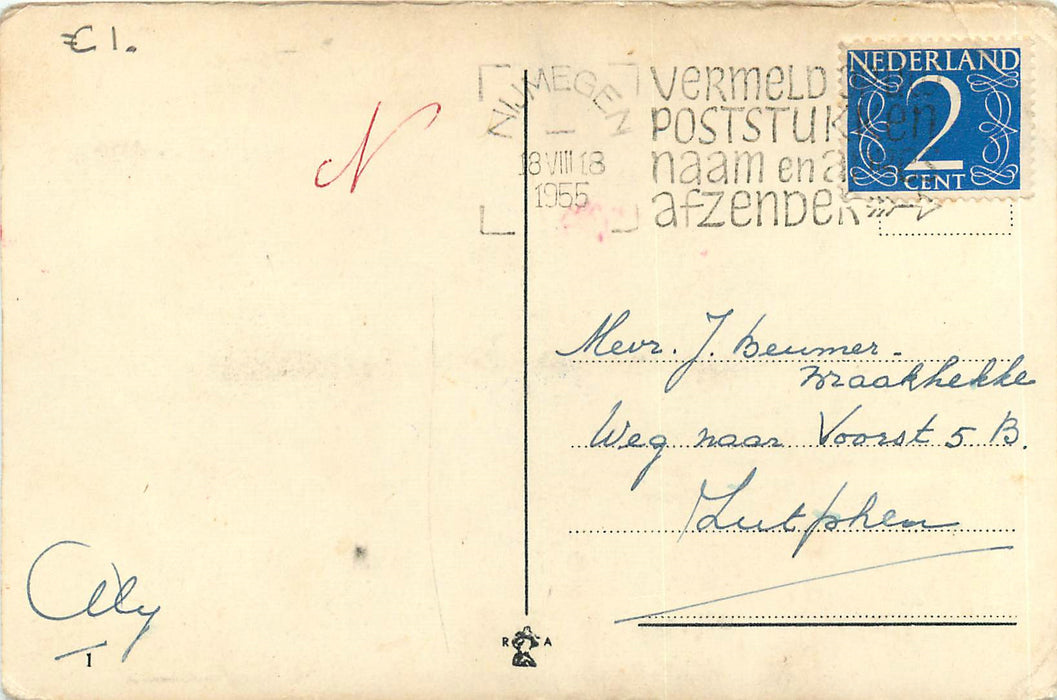 € 1.
N
NIJMEGEN
18 VIII 18
1955
VERMELD
POSTSTUKKEN
naam en a
afzender
NEDERLAND
2
CENT
Mevr. J. Beumer-
Braakhekke
Weg naar Voorst 5 B.
Zutphen
1
R A